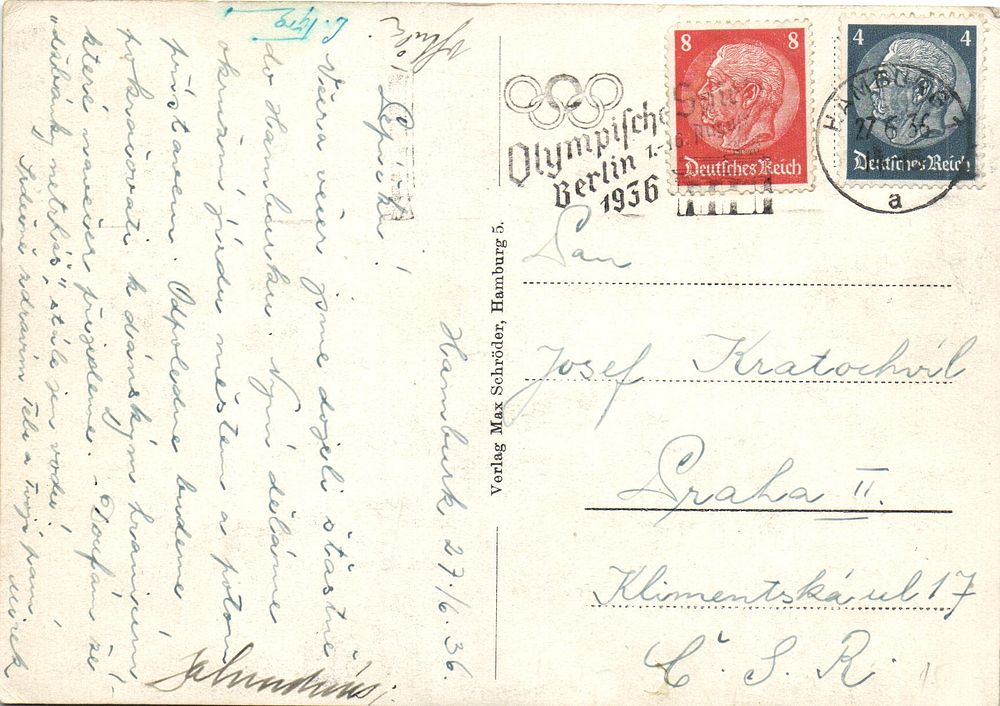 Hamburk 27./6. 36.
Pepíčku!
Včera večer jsme dojeli šťastně
do Hamburku. Nyní děláme
okružní jízdu městem a potom
přístavem. Odpoledne budeme
pokračovati k dánským hranicím
které navečer přijedeme. Doufám že
stále jen vodu!
Srdečně zdraví Tebe a Tvojí paní
Mirek
Verlag Max Schröder, Hamburg 5.
Olympische
Berlin 1.-16. Aug.
1936
8 8
Deutsches Reich
4 4
Deutsches Reich
HAMBURG 1
27 6 36
a
Pan
Josef Kratochvíl
Praha II.
Klimentská ul 17
Č. S. R.